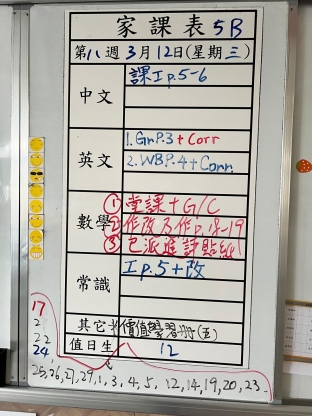 家課表 5B
第八週3月12日(星期三)
中文
課I p.5-6
英文
1. Gr.P.3 + Corr
2. WB P.4 + Corr.
數學
① 堂課 + G/C
② 作改及作p.18-19
③ 已派進評貼紙
常識
I p.5 + 改
其它
價值學習冊(五)
值日生
12
17
2
22
24
25, 26, 27, 29, 1, 3, 4, 5, 12, 14, 19, 20, 23